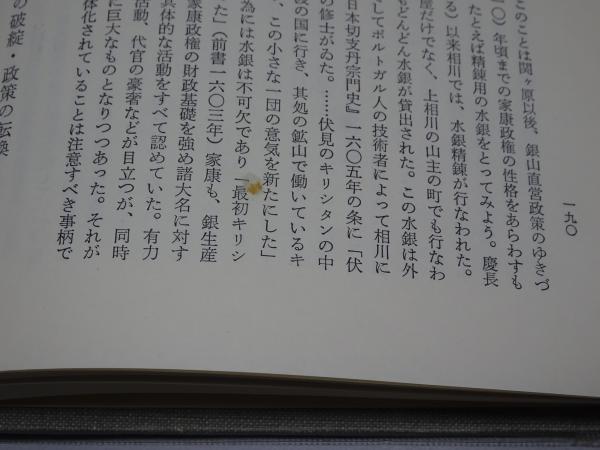 一九〇
このことは関ヶ原以後、銀山直営政策のゆきづ
一〇）年頃までの家康政権の性格をあらわすも
たとえば精錬用の水銀をとってみよう。慶長
る）以来相川では、水銀精錬が行なわれた。
屋だけでなく、上相川の山主の町でも行なわ
もどんどん水銀が貸出された。この水銀は外
してポルトガル人の技術者によって相川に
日本切支丹宗門史』一六〇五年の条に「伏
の修士がゐた。……伏見のキリシタンの中
の国に行き、其処の鉱山で働いているキ
、この小さな一団の意気を新たにした」
為には水銀は不可欠であり「最初キリシ
た」（前書一六〇三年）家康も、銀生産
家康政権の財政基礎を強め諸大名に対す
具体的な活動をすべて認めていた。有力
活動、代官の豪奢などが目立つが、同時
に巨大なものとなりつつあった。それが
体化されていることは注意すべき事柄で
の破綻・政策の転換